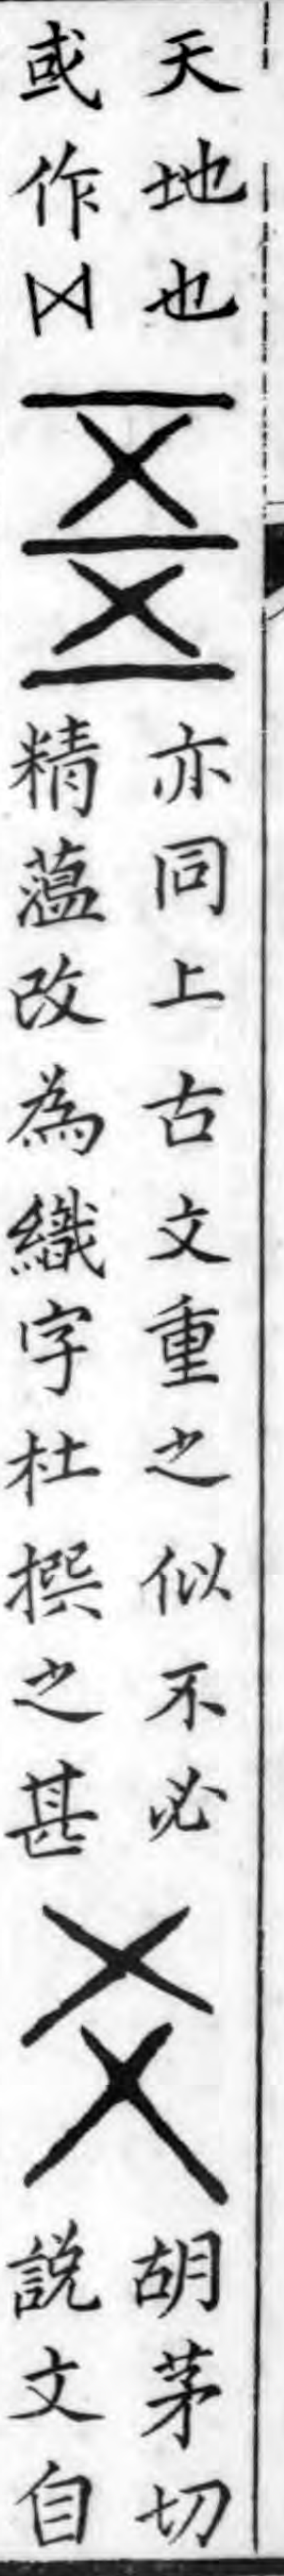 天地也
或作⋈
亦同上古文重之似不必
精薀改為織字杜撰之甚
爻
胡茅切
説文自